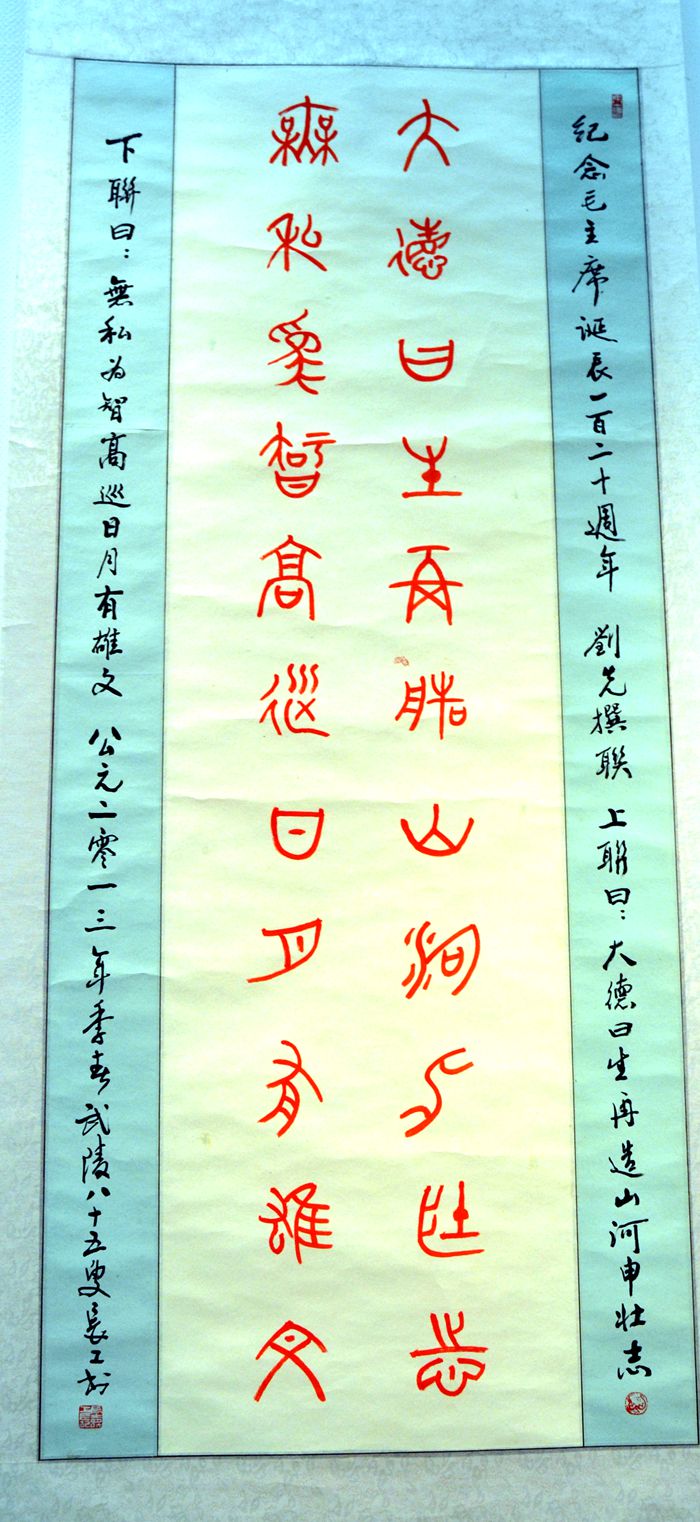 紀念毛主席誕辰一百二十週年 劉先撰聯 上聯曰：大德曰生再造山河申壯志
大德曰生再造山河申壯志
無私為智高巡日月有雄文
下聯曰：無私为智高巡日月有雄文 公元二零一三年季春武陵八十五叟長工书